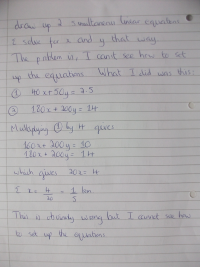 draw up 2 simultaneous linear equations
& solve for x and y that way.
The problem is, I can't see how to set
up the equations. What I did was this:
① 40x + 50y = 7.5
② 180x + 200y = 14
Multiplying ① by 4 gives
160x + 200y = 30
180x + 200y = 14
which gives 20x = 4
x = 4/20 = 1/5 km.
This is obviously wrong but I cannot see how
to set up the equations.